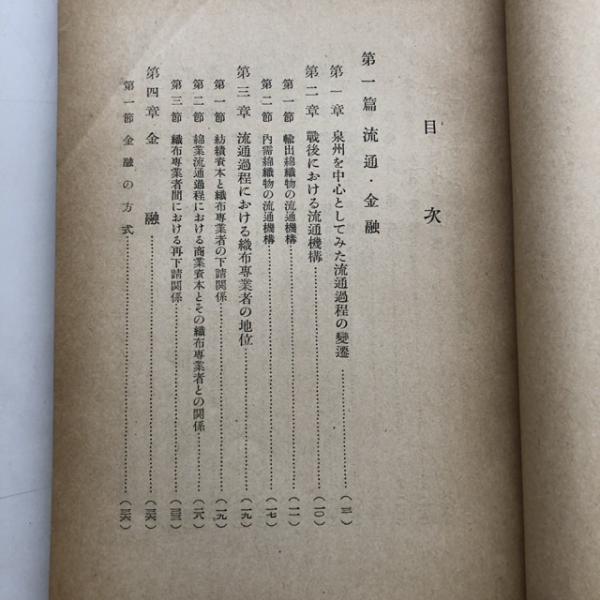 目次
第一篇 流通・金融
第一章 泉州を中心としてみた流通過程の變遷
第二章 戰後における流通機構 (一〇)
第一節 輸出綿織物の流通機構 (一一)
第二節 内需綿織物の流通機構 (一七)
第三章 流通過程における織布専業者の地位 (一九)
第一節 紡績資本と織布専業者の下請関係 (一九)
第二節 綿業流通過程における商業資本とその織布専業者との関係 (二八)
第三節 織布専業者間における再下請関係
第四章 金融
第一節 金融の方式